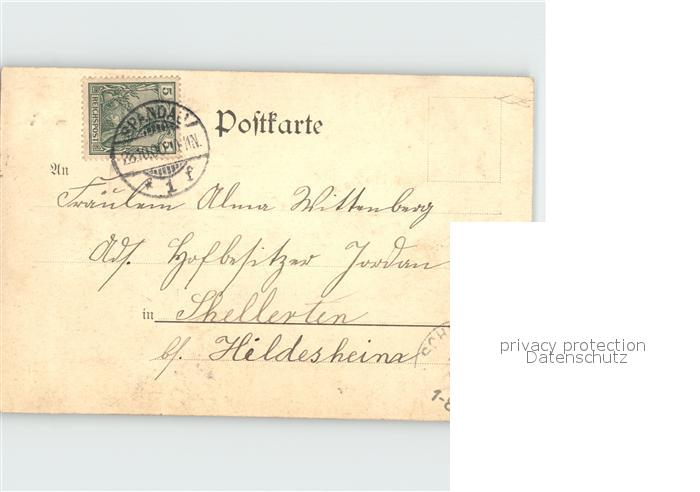 Postkarte
5
REICHSPOST
SPANDAU
* 1 f
An
Fräulein Alma Wittenberg
Adr. Hofbesitzer Jordan
in Shellerten
b/. Hildesheim
SCH
1-8
privacy protection
Datenschutz